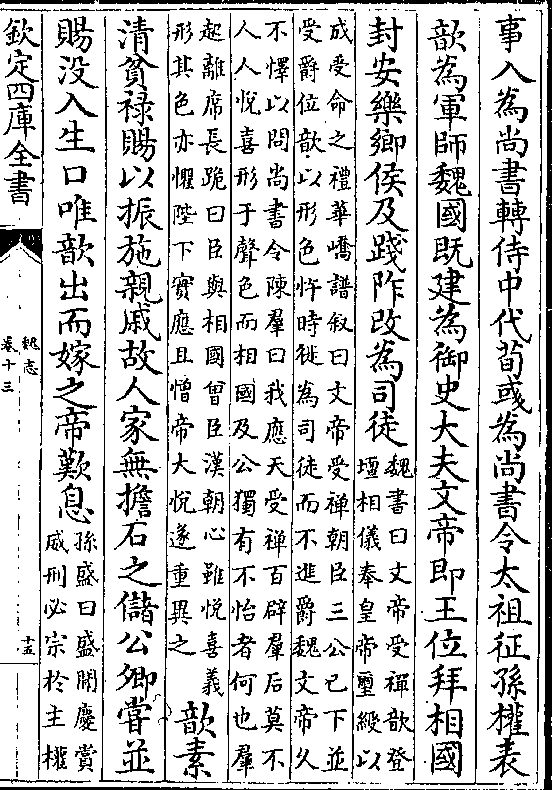 事入為尚書轉侍中代荀彧為尚書令太祖征孫權表
歆為軍師魏國既建為御史大夫文帝即王位拜相國
封安樂鄉侯及踐阼改為司徒
魏書曰文帝受禪歆登
壇相儀奉皇帝璽綬以
成受命之禮華嶠譜叙曰文帝受禪朝臣三公已下並
受爵位歆以形色忤時徙為司徒而不進爵魏文帝久
不懌以問尚書令陳羣曰我應天受禪百辟羣后莫不
人人悅喜形于聲色而相國及公獨有不怡者何也羣
起離席長跪曰臣與相國曾臣漢朝心雖悅喜義
形其色亦懼陛下實應且憎帝大悅遂重異之
歆素
清貧禄賜以振施親戚故人家無擔石之儲公卿嘗並
賜没入生口唯歆出而嫁之帝歎息
孫盛曰盛聞慶賞
威刑必宗於主權
欽定四庫全書
魏志
卷十三
十五